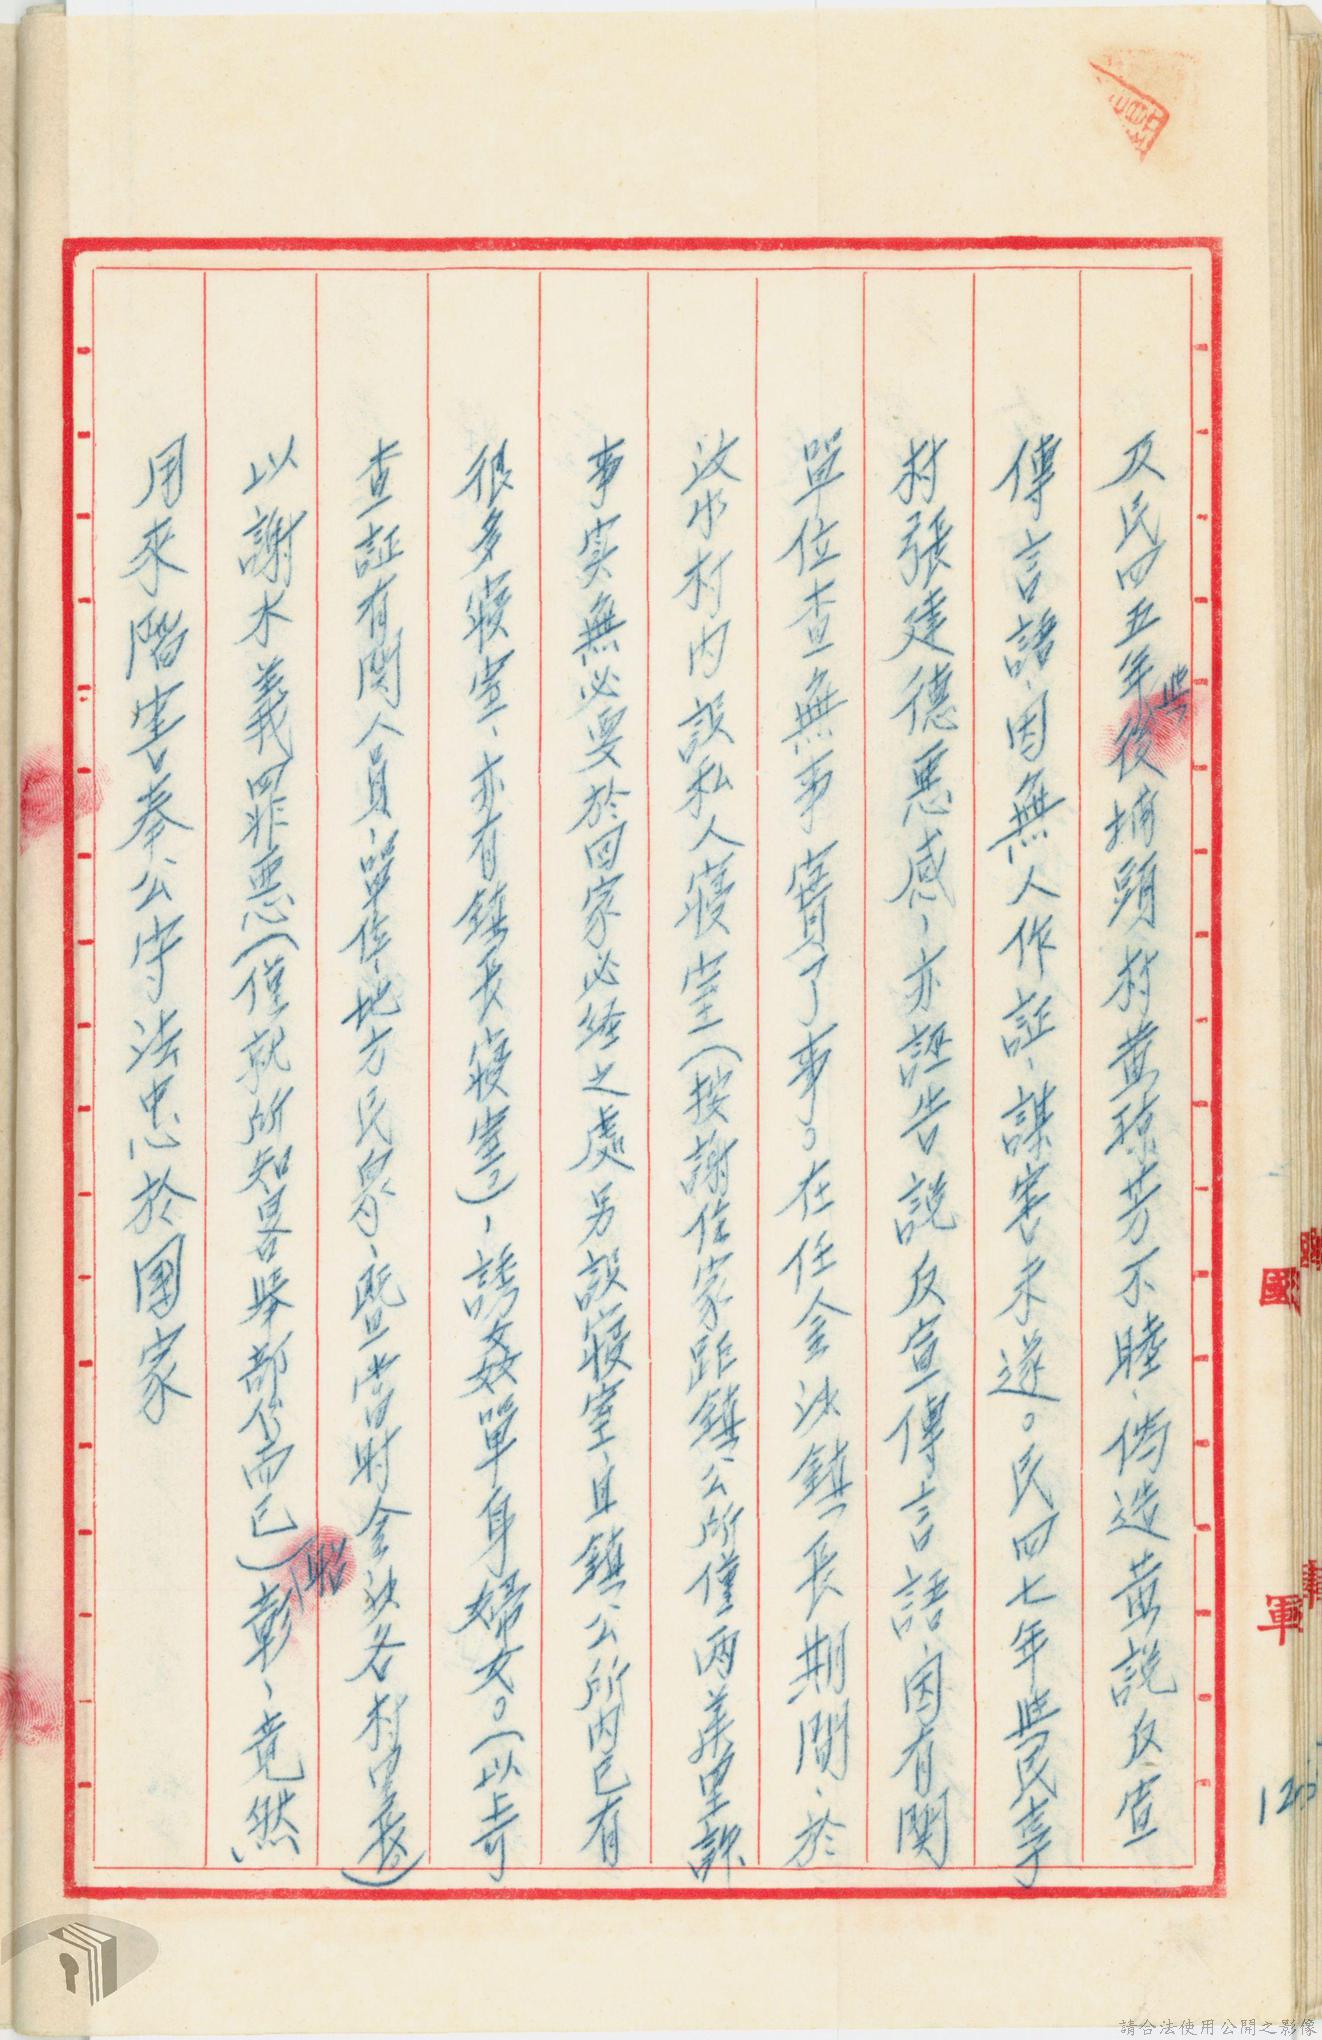 及民四五年後與埔頭村黃琼芳不睦、偽造黃說反宣
傳言語、因無人作証、謀害未遂。民四七年與民享
村張建德惡感、亦誣告說反宣傳言語因有関
單位查無事實了事。在任金沙鎮長期間、於
汶水村內設私人寢室(按謝住家距鎮公所僅兩華里許
事实無必要於回家必経之處另設寢室、且鎮公所內已有
很多寢室、亦有鎮長寢室。)、誘姦單身婦女。(以上可
查証有関人員、單位、地方民眾、暨當時金沙各村里長。)
以謝水義罪惡(僅就所知畧舉部份而已)昭彰、竟然
用來階害奉公守法忠於國家
國
軍
125
請合法使用公開之影像